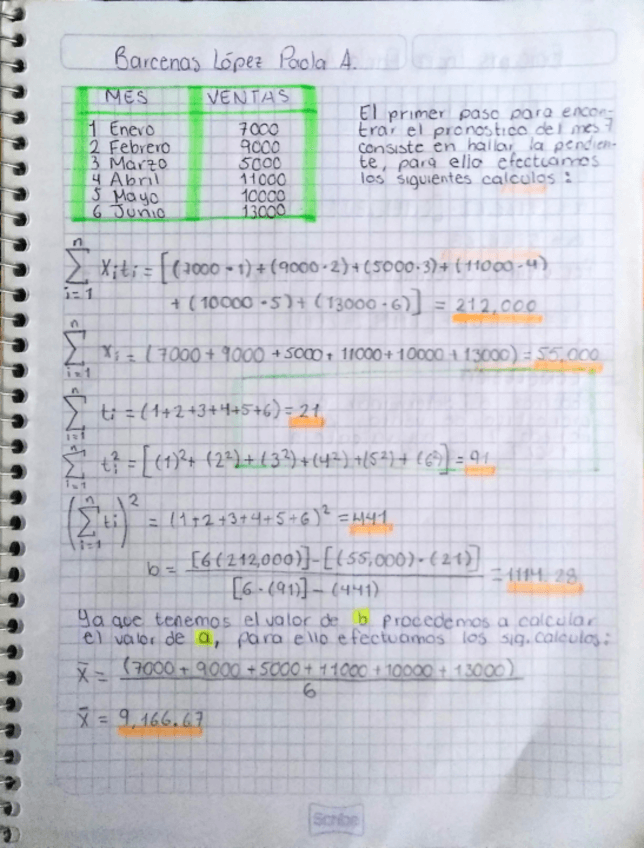 Barcenas López Paola A.
MES VENTAS
1 Enero 7000
2 Febrero 9000
3 Marzo 5000
4 Abril 11000
5 Mayo 10000
6 Junio 13000
El primer paso para encon-
trar el pronostico del mes 7
consiste en hallar la pendien-
te, para ello efectuamos
los siguientes calculos:
n
∑ Xiti = [(7000·1)+(9000·2)+(5000·3)+(11000·4)
i=1
+(10000·5)+(13000·6)] = 212,000
n
∑ xi = (7000+9000+5000+11000+10000+13000)=55,000
i=1
n
∑ ti = (1+2+3+4+5+6)=21
i=1
n
∑ ti² = [(1)²+(2²)+(3²)+(4²)+(5²)+(6²)]=91
i=1
(n ∑ i=1 ti)² = (1+2+3+4+5+6)²=441
b = [6(212,000)]-[(55,000)·(21)] / [6·(91)]-(441) = 1114.28
Ya que tenemos el valor de b procedemos a calcular
el valor de a, para ello efectuamos los sig. calculos:
x̄ = (7000+9000+5000+11000+10000+13000) / 6
x̄ = 9,166.67
Scribe